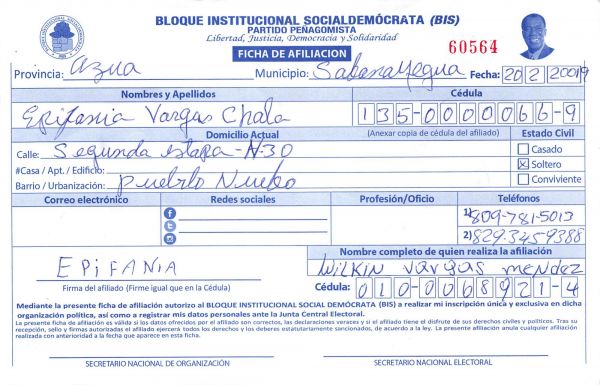 BLOQUE INSTITUCIONAL SOCIALDEMÓCRATA (BIS)
PARTIDO PEÑAGOMISTA
Libertad, Justicia, Democracia y Solidaridad
FICHA DE AFILIACION
60564
Provincia: Azua Municipio: Sabana Yegua Fecha: 20/2/20019
Nombres y Apellidos Cédula
Epifania Vargas Chala 135-0000066-9
Domicilio Actual (Anexar copia de cédula del afiliado) Estado Civil
Calle: Segunda Etapa - N-30 Casado
#Casa / Apt. / Edificio: Soltero
Barrio / Urbanización: Pueblo Nuebo Conviviente
Correo electrónico Redes sociales Profesión/Oficio Teléfonos
1) 809-781-5013
2) 829.345-9388
Nombre completo de quien realiza la afiliación
EPIFANIA Wilkin Vargas Mendez
Firma del afiliado (Firme igual que en la Cédula) Cédula: 010-0068921-4
Mediante la presente ficha de afiliación autorizo al BLOQUE INSTITUCIONAL SOCIAL DEMÓCRATA (BIS) a realizar mi inscripción única y exclusiva en dicha
organización política, así como a registrar mis datos personales ante la Junta Central Electoral.
La presente ficha de afiliación es válida si los datos ofrecidos por el afiliado son correctos, las declaraciones veraces y si el afiliado tiene el disfrute de sus derechos civiles y políticos. Tras su
recepción, sello y firmas autorizadas el afiliado ejercerá todos los derechos y los deberes estatutariamente sancionados, de acuerdo a la ley. La presente afiliación anula cualquier afiliación
realizada con anterioridad a la fecha que aparece en esta ficha.
SECRETARIO NACIONAL DE ORGANIZACIÓN SECRETARIO NACIONAL ELECTORAL